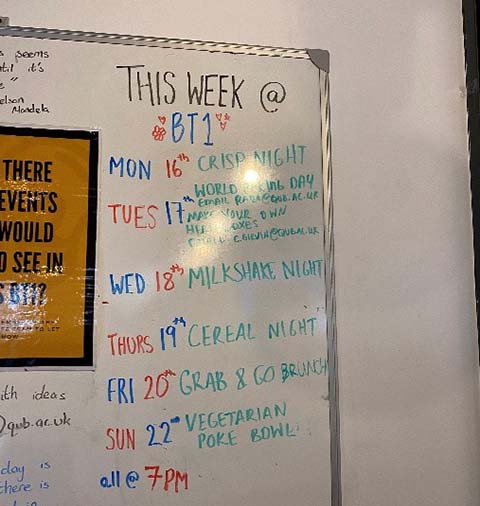 seems
until it's
"
Mandela
THERE
EVENTS
WOULD
SEE IN
BT1?
with ideas
@qub.ac.uk
day is
there is
THIS WEEK @
BT1
MON 16th CRISP NIGHT
TUES 17th WORLD DAY
EMAIL
MAKE YOUR OWN
WED 18th MILKSHAKE NIGHT
THURS 19th CEREAL NIGHT
FRI 20th GRAB & GO BRUNCH
SUN 22nd VEGETARIAN
POKE BOWL
all @ 7PM